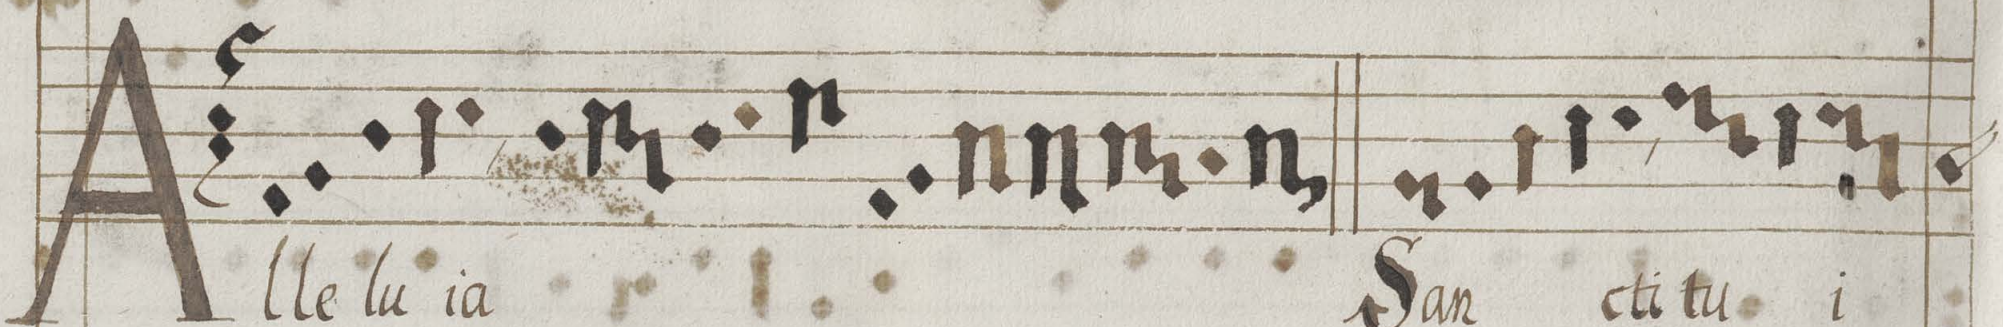 Alle lu ia San cti tu i